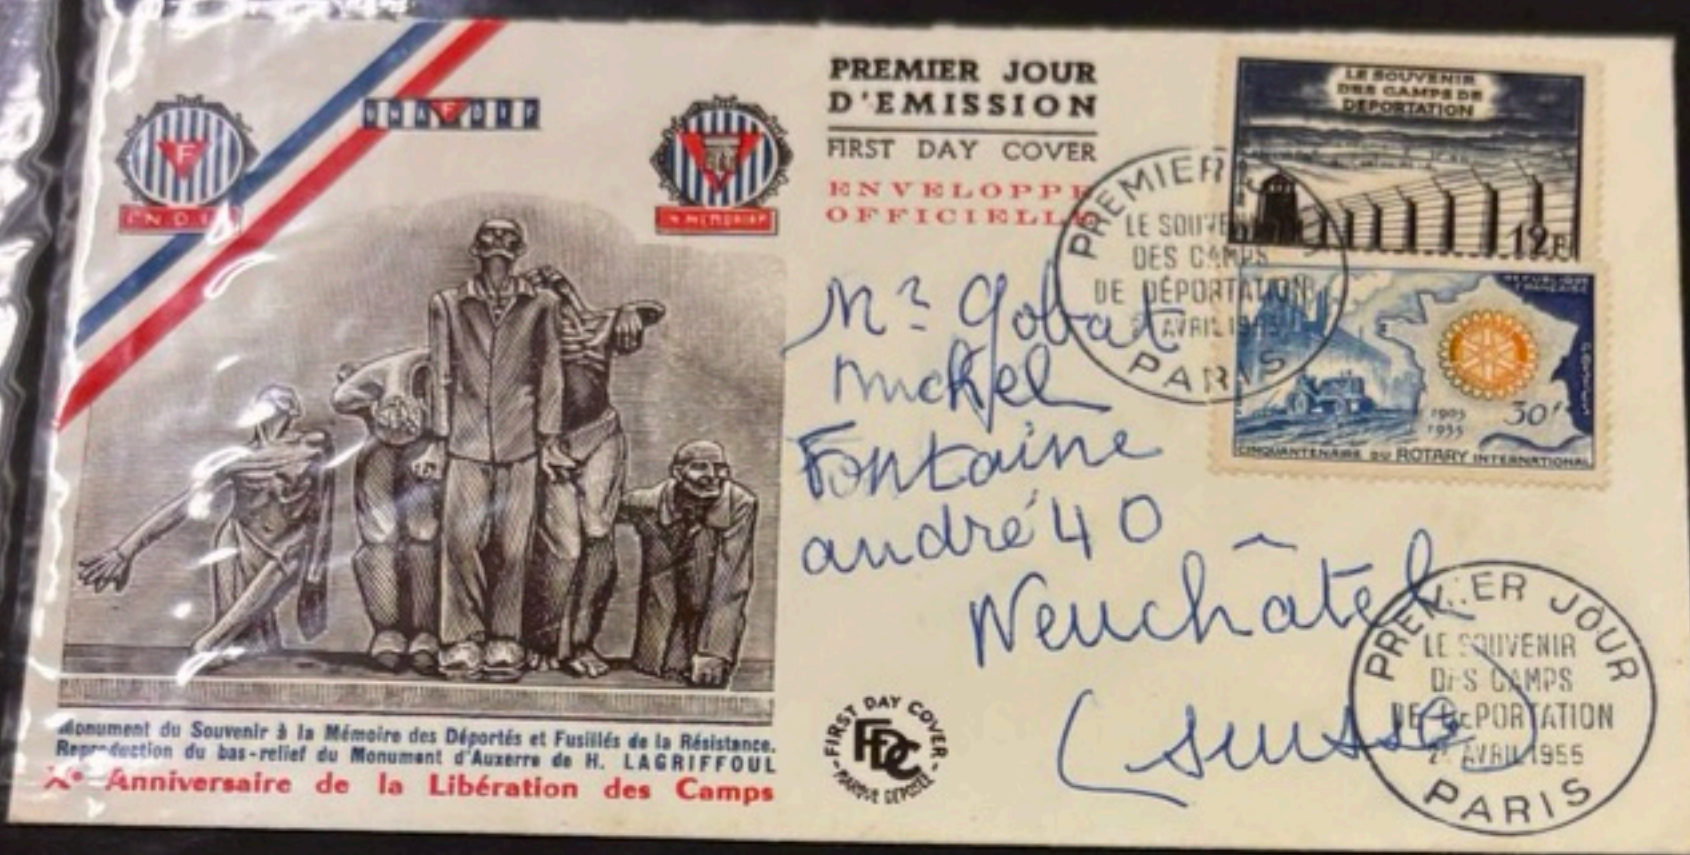 F
F.N.D.I.
U N A F D I F
PREMIER JOUR
D'EMISSION
FIRST DAY COVER
ENVELOPPE
OFFICIELLE
LE SOUVENIR
DES CAMPS DE
DEPORTATION
12F
PREMIER
LE SOUVENIR
DES CAMPS
DE DÉPORTATION
AVRIL 1955
PARIS
REPUBLIQUE
FRANÇAISE
1905
1955
30F
CINQUANTENAIRE DU ROTARY INTERNATIONAL
Mr Gobat
Michel
Fontaine
andré 40
Neuchâtel
(suisse)
PREMIER JOUR
LE SOUVENIR
DES CAMPS
DE DEPORTATION
AVRIL 1955
PARIS
FIRST DAY COVER
FDC
MARQUE DEPOSEE
Monument du Souvenir à la Mémoire des Déportés et Fusillés de la Résistance.
Reproduction du bas-relief du Monument d'Auxerre de H. LAGRIFFOUL
Xe Anniversaire de la Libération des Camps